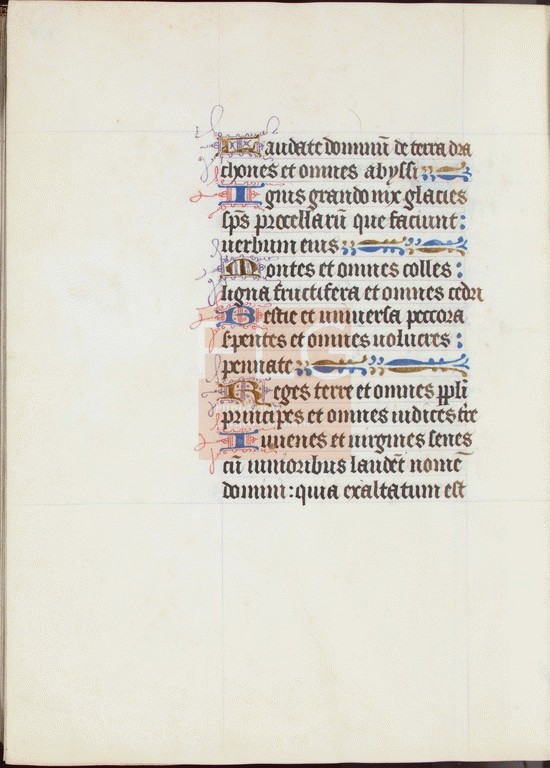 Laudate dominū de terra dra
chones et omnes abyssi
Ignis grando nix glacies
sp̄s procellarū que faciunt:
uerbum eius
Montes et omnes colles:
ligna fructifera et omnes cedri
Bestie et uniuersa peccora
serpentes et omnes uolucres:
pennate
Reges terre et omnes ppli
principes et omnes iudices tre
Iuuenes et uirgines senes
cū iunioribus laudēt nomē
domini: quia exaltatum est